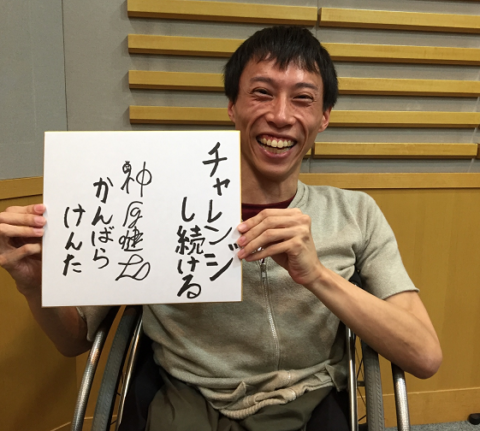 チャレンジ
し続ける
神原健太
かんばら
けんた